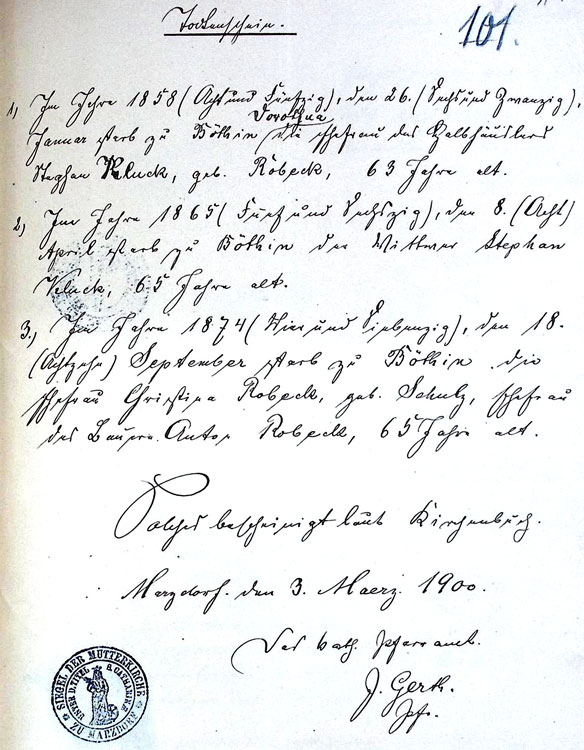 Todtenschein.
101.
1, Im Jahre 1858 (Acht und Fünfzig), den 26. (Sechs und Zwanzig),
Dorothea
Januar starb zu Böthin die Ehefrau des Halbhäuslers
Stephan Kluck, geb. Robeck, 63 Jahre alt.
2, Im Jahre 1865 (Fünf und Sechszig), den 8. (Acht)
April starb zu Böthin der Wittwer Stephan
Kluck, 65 Jahre alt.
3, Im Jahre 1874 (Vier und Siebenzig), den 18.
(Achtzehn) September starb zu Böthin die
Ehefrau Christina Robeck, geb. Schulz, Ehefrau
des Anton Robeck, 65 Jahre alt.
Solches bescheinigt laut Kirchenbuch.
Marzdorf. den 3. Maerz. 1900.
Das kath. Pfarramt.
J. Gerth.
Pfr.
SIEGEL DER MUTTERKIRCHE
ZU MARZDORF
UNTER D. TITEL